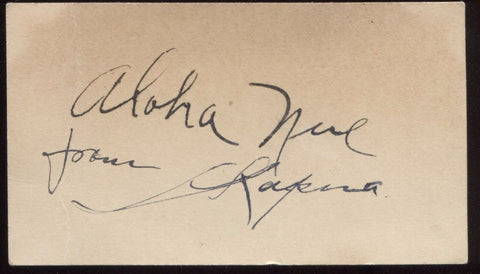 Aloha Nue
from Kapua